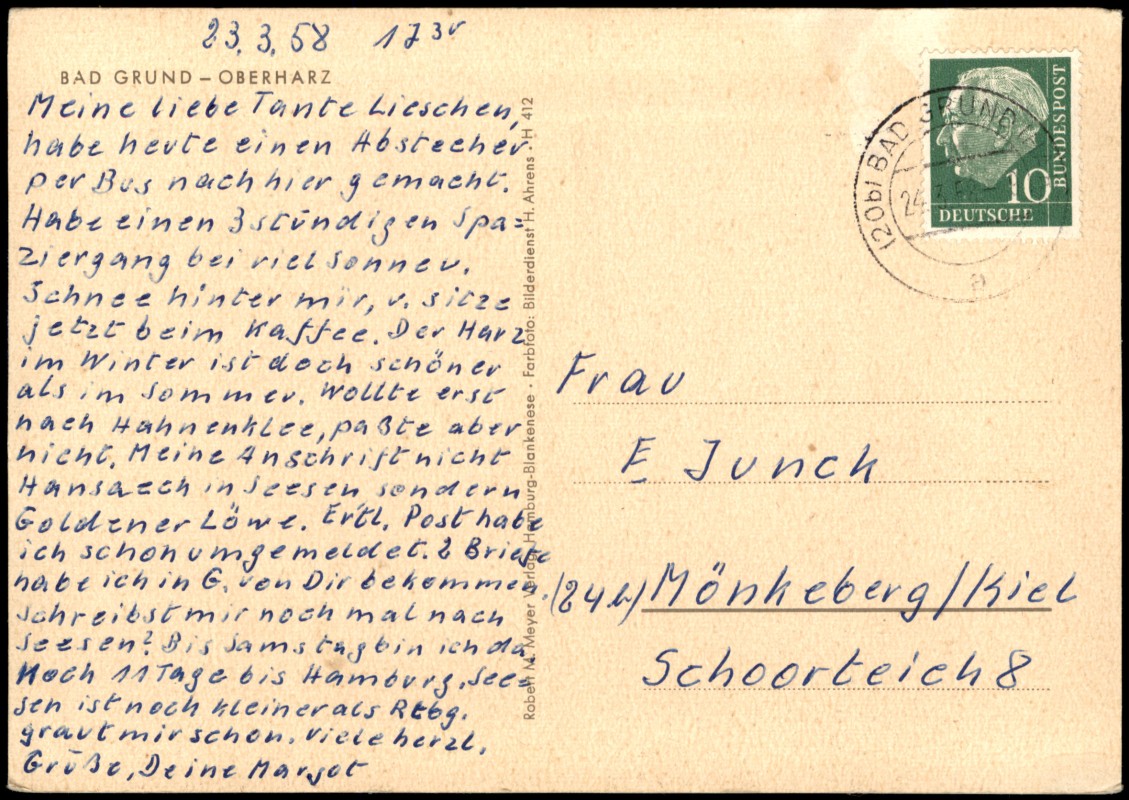 23.3.58 17 30
BAD GRUND – OBERHARZ
Meine liebe Tante Lieschen,
habe heute einen Abstecher
per Bus nach hier gemacht.
Habe einen 3stündigen Spa=
ziergang bei viel Sonne u.
Schnee hinter mir, u. sitze
jetzt beim Kaffee. Der Harz
im Winter ist doch schöner
als im Sommer. Wollte erst
nach Hahnenklee, paßte aber
nicht. Meine Anschrift nicht
in Seesen sondern
Goldener Löwe. Ertl. Post habe
ich schon umgemeldet. 2 Briefe
habe ich in G. von Dir bekommen.
Schreibst mir noch mal nach
Seesen? Bis Samstag bin ich da
Noch 11 Tage bis Hamburg. See=
sen ist noch kleiner als Rtbg.
graut mir schon. Viele herzl.
Grüße, Deine Margot
Robert M. Meyer Verlag, Hamburg-Blankenese · Farbfoto: Bilderdienst H. Ahrens · H 412
DEUTSCHE
BUNDESPOST
10
(20b) BAD GRUND
24.3.5
a
Frau
E Junck
(24b) Mönkeberg/Kiel
Schoorteich 8